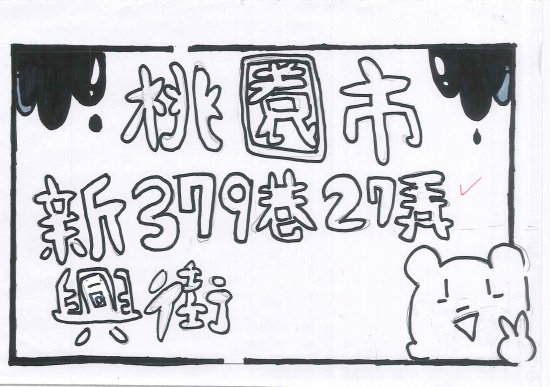 桃園市
新379巷27弄
興街